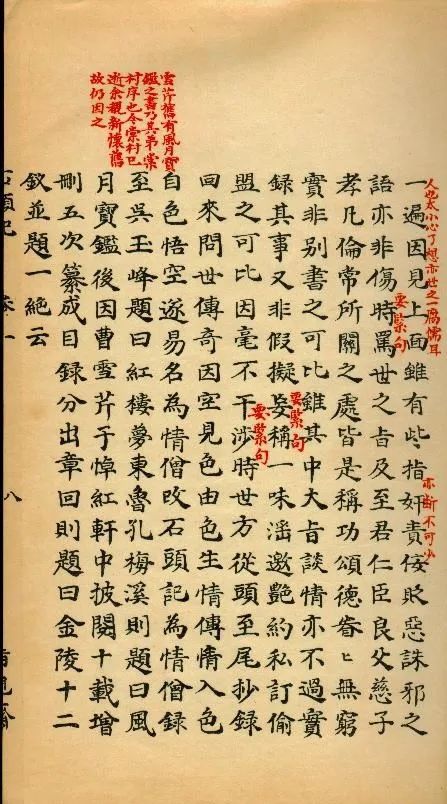 雪芹舊有風月寶
鑑之書乃其弟棠
村序也今棠村已
逝余覩新懷舊
故仍因之
人也太小心了想亦世之一腐儒耳
亦斷不可少
一遍因見上面雖有些指奸責佞貶惡誅邪之
要緊句
語亦非傷時罵世之旨及至君仁臣良父慈子
孝凡倫常所關之處皆是稱功頌德眷〻無窮
實非別書之可比雖其中大旨談情亦不過實
要緊句
錄其事又非假擬妄稱一味淫邀艷約私訂偷
要緊句
盟之可比因毫不干涉時世方從頭至尾抄錄
回來問世傳奇因空見色由色生情傳情入色
自色悟空遂易名為情僧改石頭記為情僧錄
至吳玉峰題曰紅樓夢東魯孔梅溪則題曰風
月寶鑑後因曹雪芹于悼紅軒中披閱十載增
刪五次纂成目錄分出章回則題曰金陵十二
釵並題一絕云
石頭記 卷一 八 脂硯齋